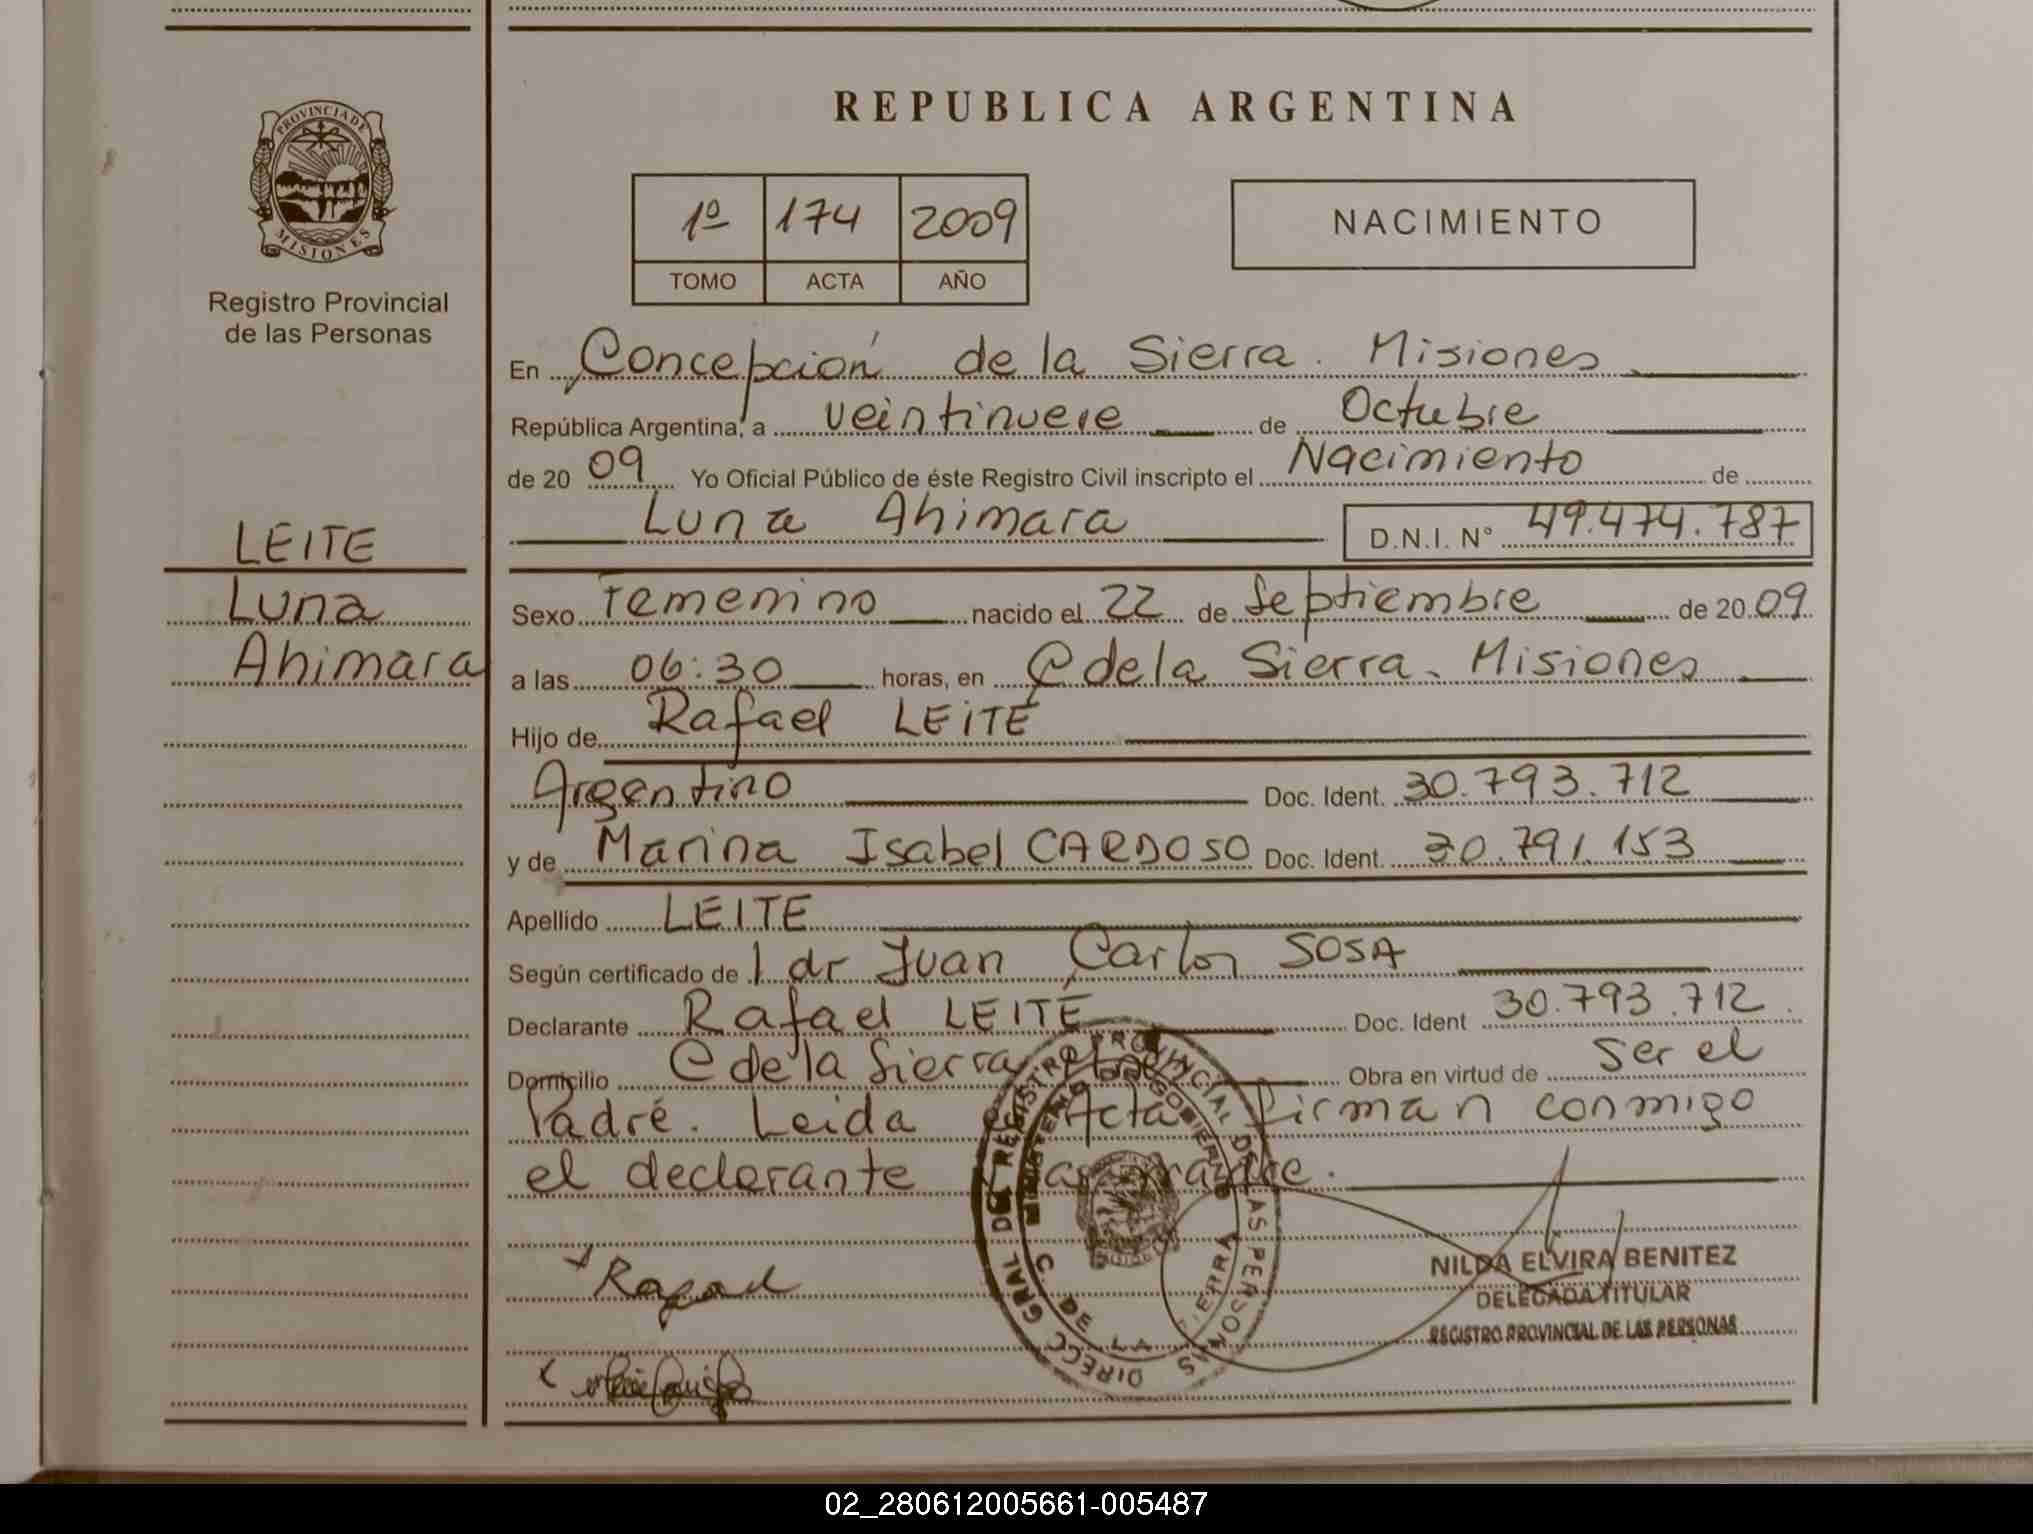 PROVINCIA DE
MISIONES
Registro Provincial
de las Personas
LEITE
Luna
Ahimara
REPUBLICA ARGENTINA
1º 174 2009
TOMO ACTA AÑO
NACIMIENTO
En Concepción de la Sierra. Misiones
República Argentina, a veintinueve de Octubre
de 2009 Yo Oficial Público de éste Registro Civil inscripto el Nacimiento de
Luna Ahimara D.N.I. N° 49.474.787
Sexo Femenino nacido el 22 de Septiembre de 2009
a las 06:30 horas, en C de la Sierra. Misiones
Hijo de Rafael LEITE
Argentino Doc. Ident. 30.793.712
y de Marina Isabel CARDOSO Doc. Ident. 30.791.153
Apellido LEITE
Según certificado de l dr Juan Carlos SOSA
Declarante Rafael LEITE Doc. Ident 30.793.712.
Domicilio C de la Sierra Obra en virtud de Ser el
Padre. Leida el Acta firman conmigo
el declarante
Rafael
NILDA ELVIRA BENITEZ
DELEGADA TITULAR
REGISTRO PROVINCIAL DE LAS PERSONAS
DIRECC. GRAL DEL REGISTRO PROVINCIAL DE LAS PERSONAS
MINISTERIO DE GOBIERNO
C. DE LA SIERRA
02_280612005661-005487